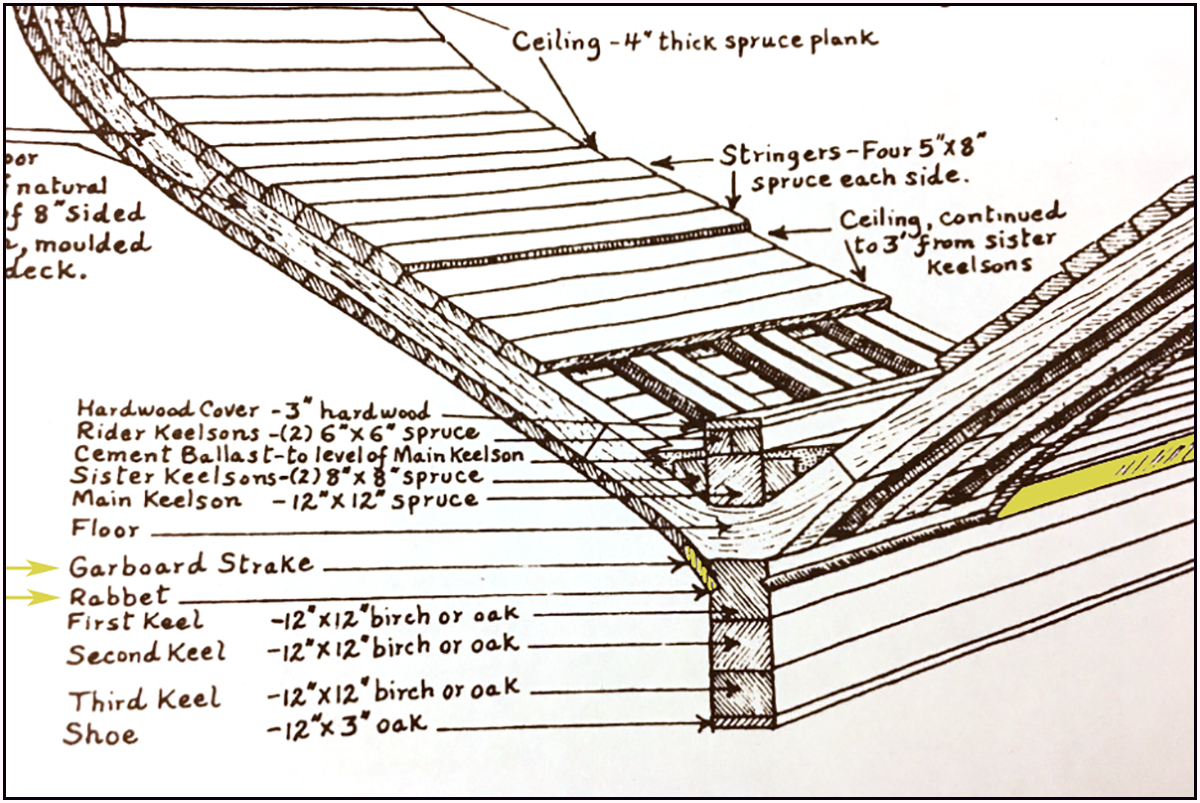 Ceiling - 4" thick spruce plank
Stringers - Four 5"X8"
spruce each side.
Ceiling, continued
to 3' from sister
keelsons
natural
of 8" sided
, moulded
deck.
Hardwood Cover - 3" hardwood
Rider Keelsons - (2) 6"X6" spruce
Cement Ballast - to level of Main Keelson
Sister Keelsons - (2) 8"X8" spruce
Main Keelson - 12"X12" spruce
Floor
Garboard Strake
Rabbet
First Keel - 12"X12" birch or oak
Second Keel - 12"X12" birch or oak
Third Keel - 12"X12" birch or oak
Shoe - 12"X3" oak